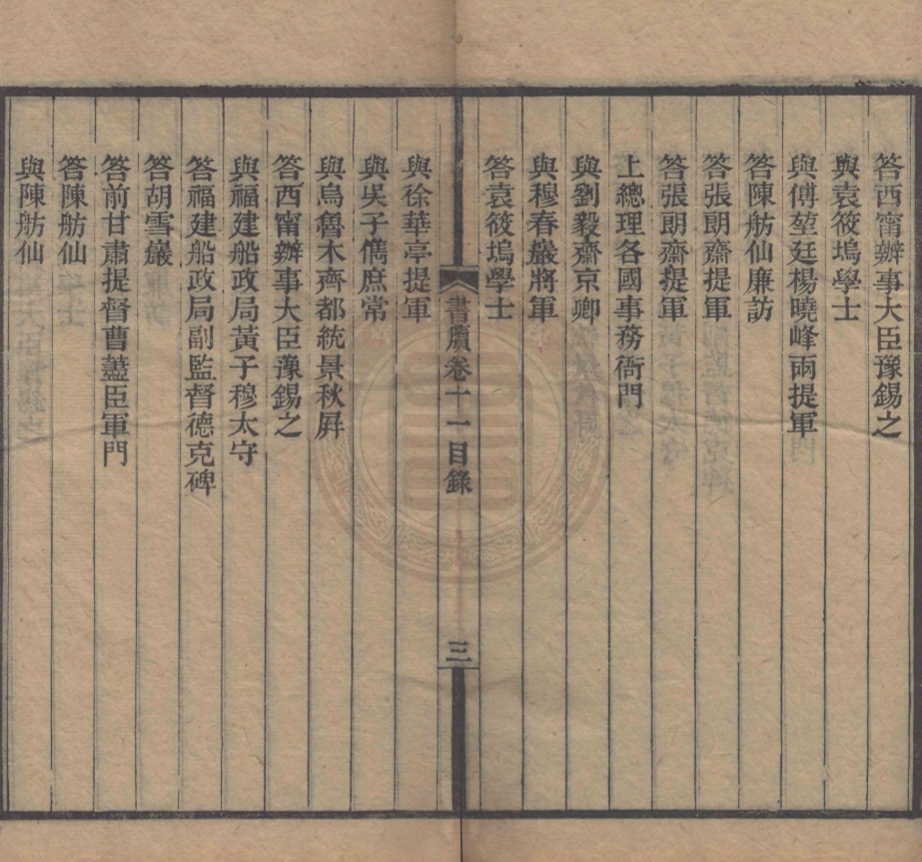 答西甯辦事大臣豫錫之
與袁筱塢學士
與傅堃廷楊曉峰兩提軍
答陳舫仙廉訪
答張朗齋提軍
答張朗齋提軍
上總理各國事務衙門
與劉毅齋京卿
與穆春巖將軍
答袁筱塢學士
書牘卷十一目錄
三
與徐華亭提軍
與吳子儁庶常
與烏魯木齊都統景秋屛
答西甯辦事大臣豫錫之
與福建船政局黃子穆太守
答福建船政局副監督德克碑
答胡雪巖
答前甘肅提督曹藎臣軍門
答陳舫仙
與陳舫仙